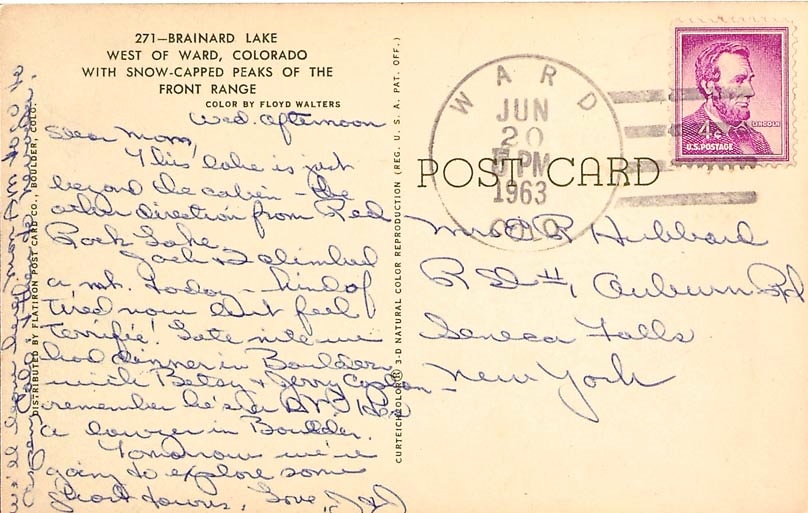 271—BRAINARD LAKE
WEST OF WARD, COLORADO
WITH SNOW-CAPPED PEAKS OF THE
FRONT RANGE
COLOR BY FLOYD WALTERS
Wed. afternoon
Dear Mom,
This lake is just
beyond the cabin - the
other direction from Red
Rock Lake.
Jack & I climbed
a mt. today - kind of
tired now but feel
terrific! Late nite we
had dinner in Boulder
with Betsy & Jerry
remember he's
a lawyer in Boulder.
Tomorrow we're
going to explore some
ghost towns. Love,
we'll leave here Mon A.M. to go to
DISTRIBUTED BY FLATIRON POST CARD CO., BOULDER, COLO.
CURTEICHCOLOR® 3-D NATURAL COLOR REPRODUCTION (REG. U. S. A. PAT. OFF.)
POST CARD
WARD
JUN
20
5 PM
1963
COLO.
LINCOLN
4¢
U.S. POSTAGE
Mrs E R Hubbard
R D #1, Auburn Rd
Seneca Falls
New York